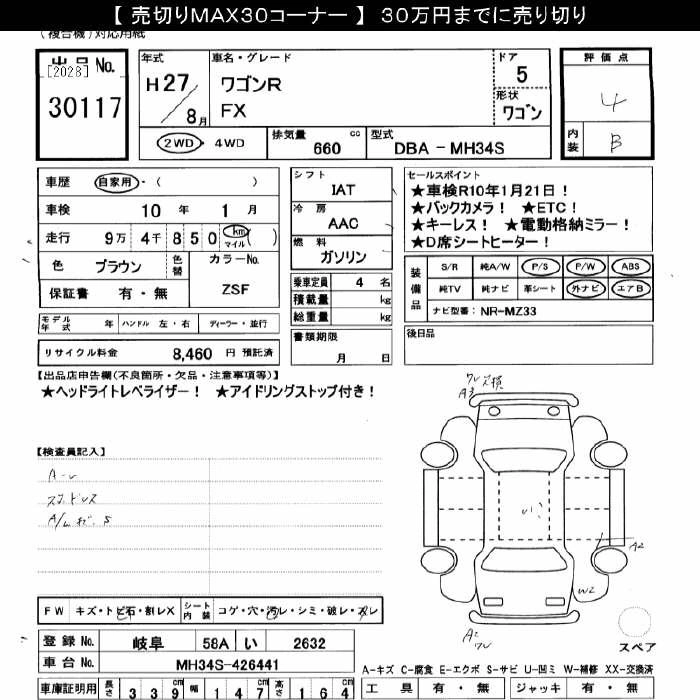 【 売切りMAX30コーナー 】 30万円までに売り切り
(複合機)対応用紙
出品No.
[2028]
30117
年式
H27/8月
車名・グレード
ワゴンR
FX
ドア
5
形状
ワゴン
評価点
4
内装
B
2WD・4WD
排気量
660 cc
型式
DBA - MH34S
車歴 自家用・( )
車検 10年 1月
走行 9万 4千 850 km マイル( )
色 ブラウン 色替 カラーNo.
保証書 有・無 ZSF
シフト
IAT
冷房
AAC
燃料
ガソリン
乗車定員 4名
積載量 kg
総重量 kg
セールスポイント
★車検R10年1月21日！
★バックカメラ！ ★ETC！
★キーレス！ ★電動格納ミラー！
★D席シートヒーター！
装備品
S/R 純A/W P/S P/W ABS
純TV 純ナビ 革シート 外ナビ エアB
ナビ型番： NR-MZ33
モデル年式 年 ハンドル 左・右 ディーラー・並行
書類期限
月 日
後日品
リサイクル料金 8,460 円 預託済
【出品店申告欄(不良箇所・欠品・注意事項等)】
★ヘッドライトレベライザー！ ★アイドリングストップ付き！
A3
【検査員記入】
A2
W2
A2
FW キズ・トビ石・割レX シート内装 コゲ・穴・汚レ・シミ・破レ・スレ
スペア
登録No. 岐阜 58A い 2632
車台No. MH34S-426441
A-キズ C-腐食 E-エクボ S-サビ U-凹ミ W-補修 XX-交換済
車庫証明用 長さ 339cm 幅 147cm 高さ 164cm
工具 有・無 ジャッキ 有・無